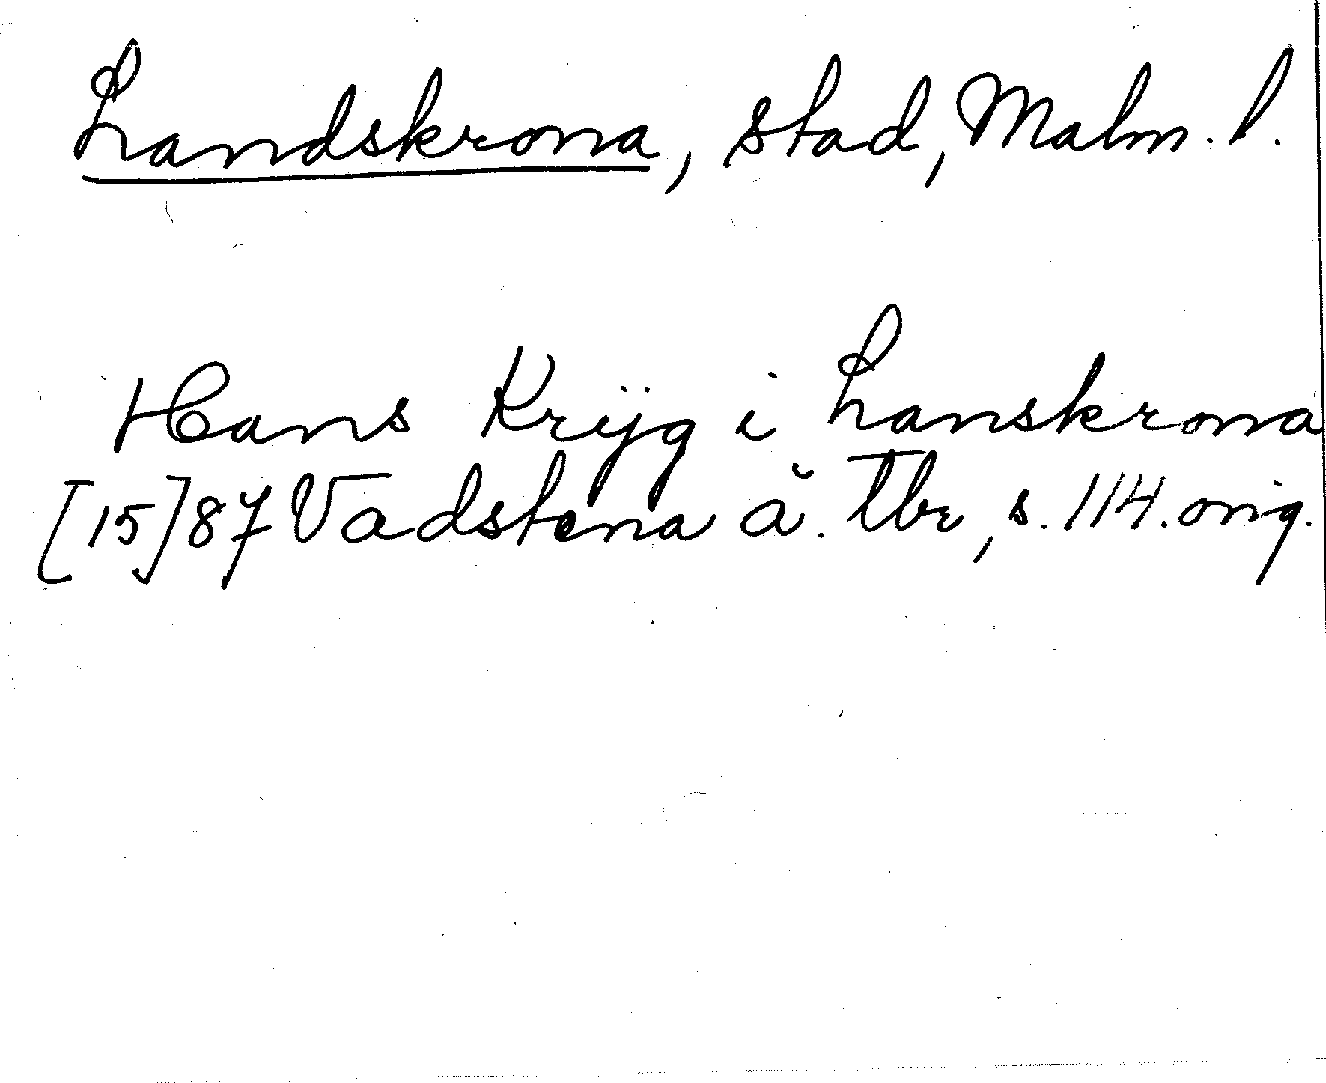 Landskrona, stad, Malm. l.
Hans Krijg i Lanskrona
[15]87 Vadstena ä. Tbr, s. 114. orig.